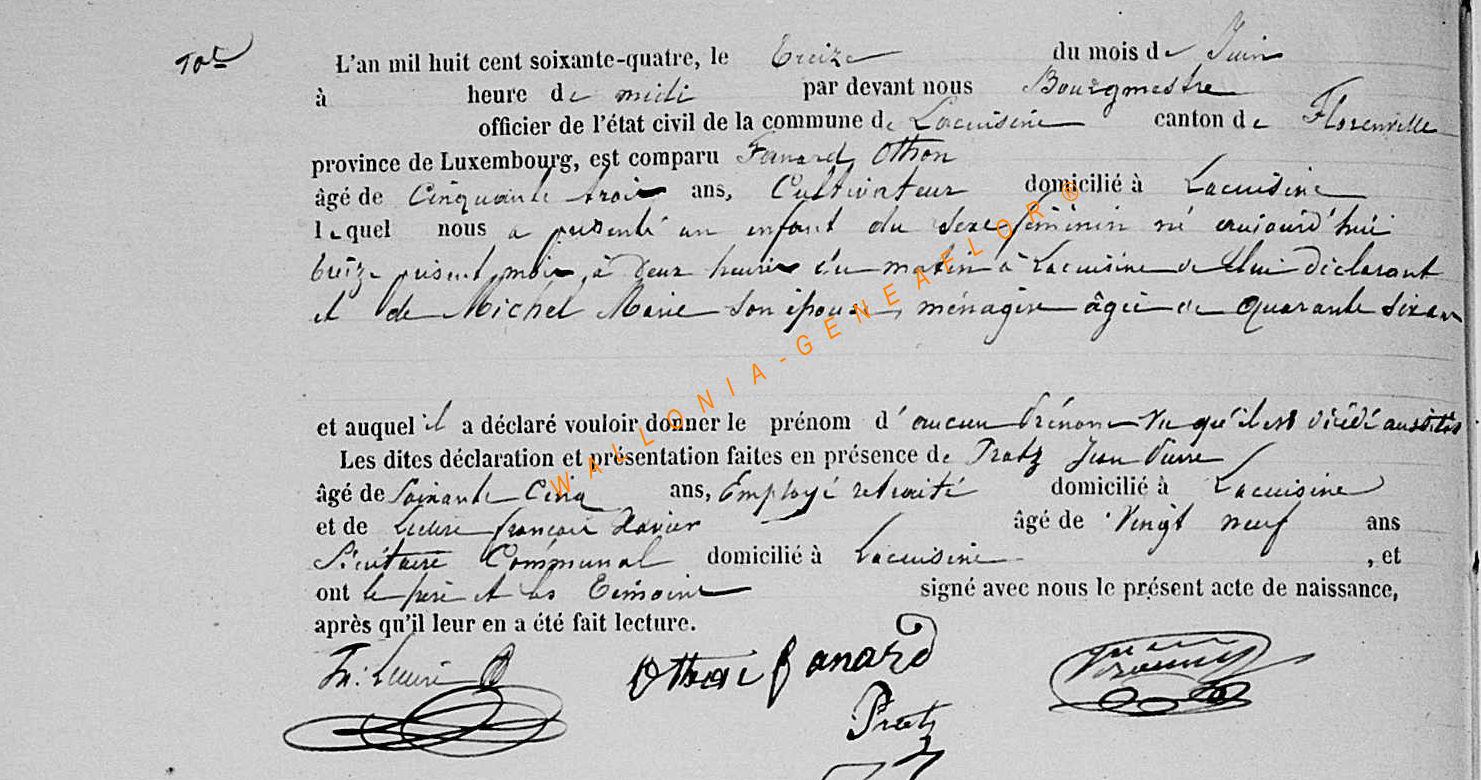 L'an mil huit cent soixante-quatre, le treize du mois de Juin
à heure de midi par devant nous Bourgmestre
officier de l'état civil de la commune de Lacuisine canton de Florenville
province de Luxembourg, est comparu Fanard Othon
âgé de Cinquante trois ans, Cultivateur domicilié à Lacuisine
lequel nous a présenté un enfant du sexe féminin né aujourd'hui
treize présent mois, à deux heures du matin à Lacuisine de lui déclarant
et de Michel Marie son épouse, ménagère âgée de quarante six ans
et auquel il a déclaré vouloir donner le prénom d'aucun prénom vu qu'il est décédé aussitôt
Les dites déclaration et présentation faites en présence de Pratz Jean Pierre
âgé de Soixante Cinq ans, Employé retraité domicilié à Lacuisine
et de françois Xavier âgé de Vingt neuf ans
Sécrétaire Communal domicilié à Lacuisine , et
ont le père et les témoins signé avec nous le présent acte de naissance,
après qu'il leur en a été fait lecture.
Othon fanard
Pratz
WALLONIA-GENEAFLOR ®